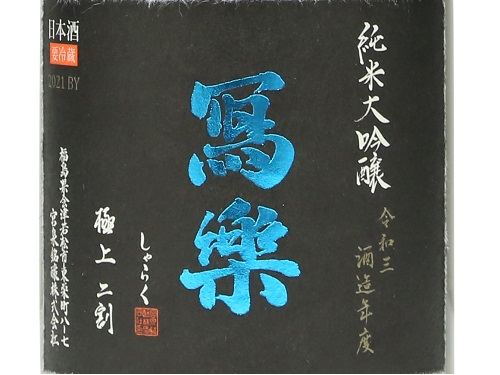 日本酒
要冷蔵
2021 BY
純米大吟醸
令和三酒造年度
寫樂
しゃらく
極上二割
福島県会津若松市東栄町八七
宮泉銘醸株式会社